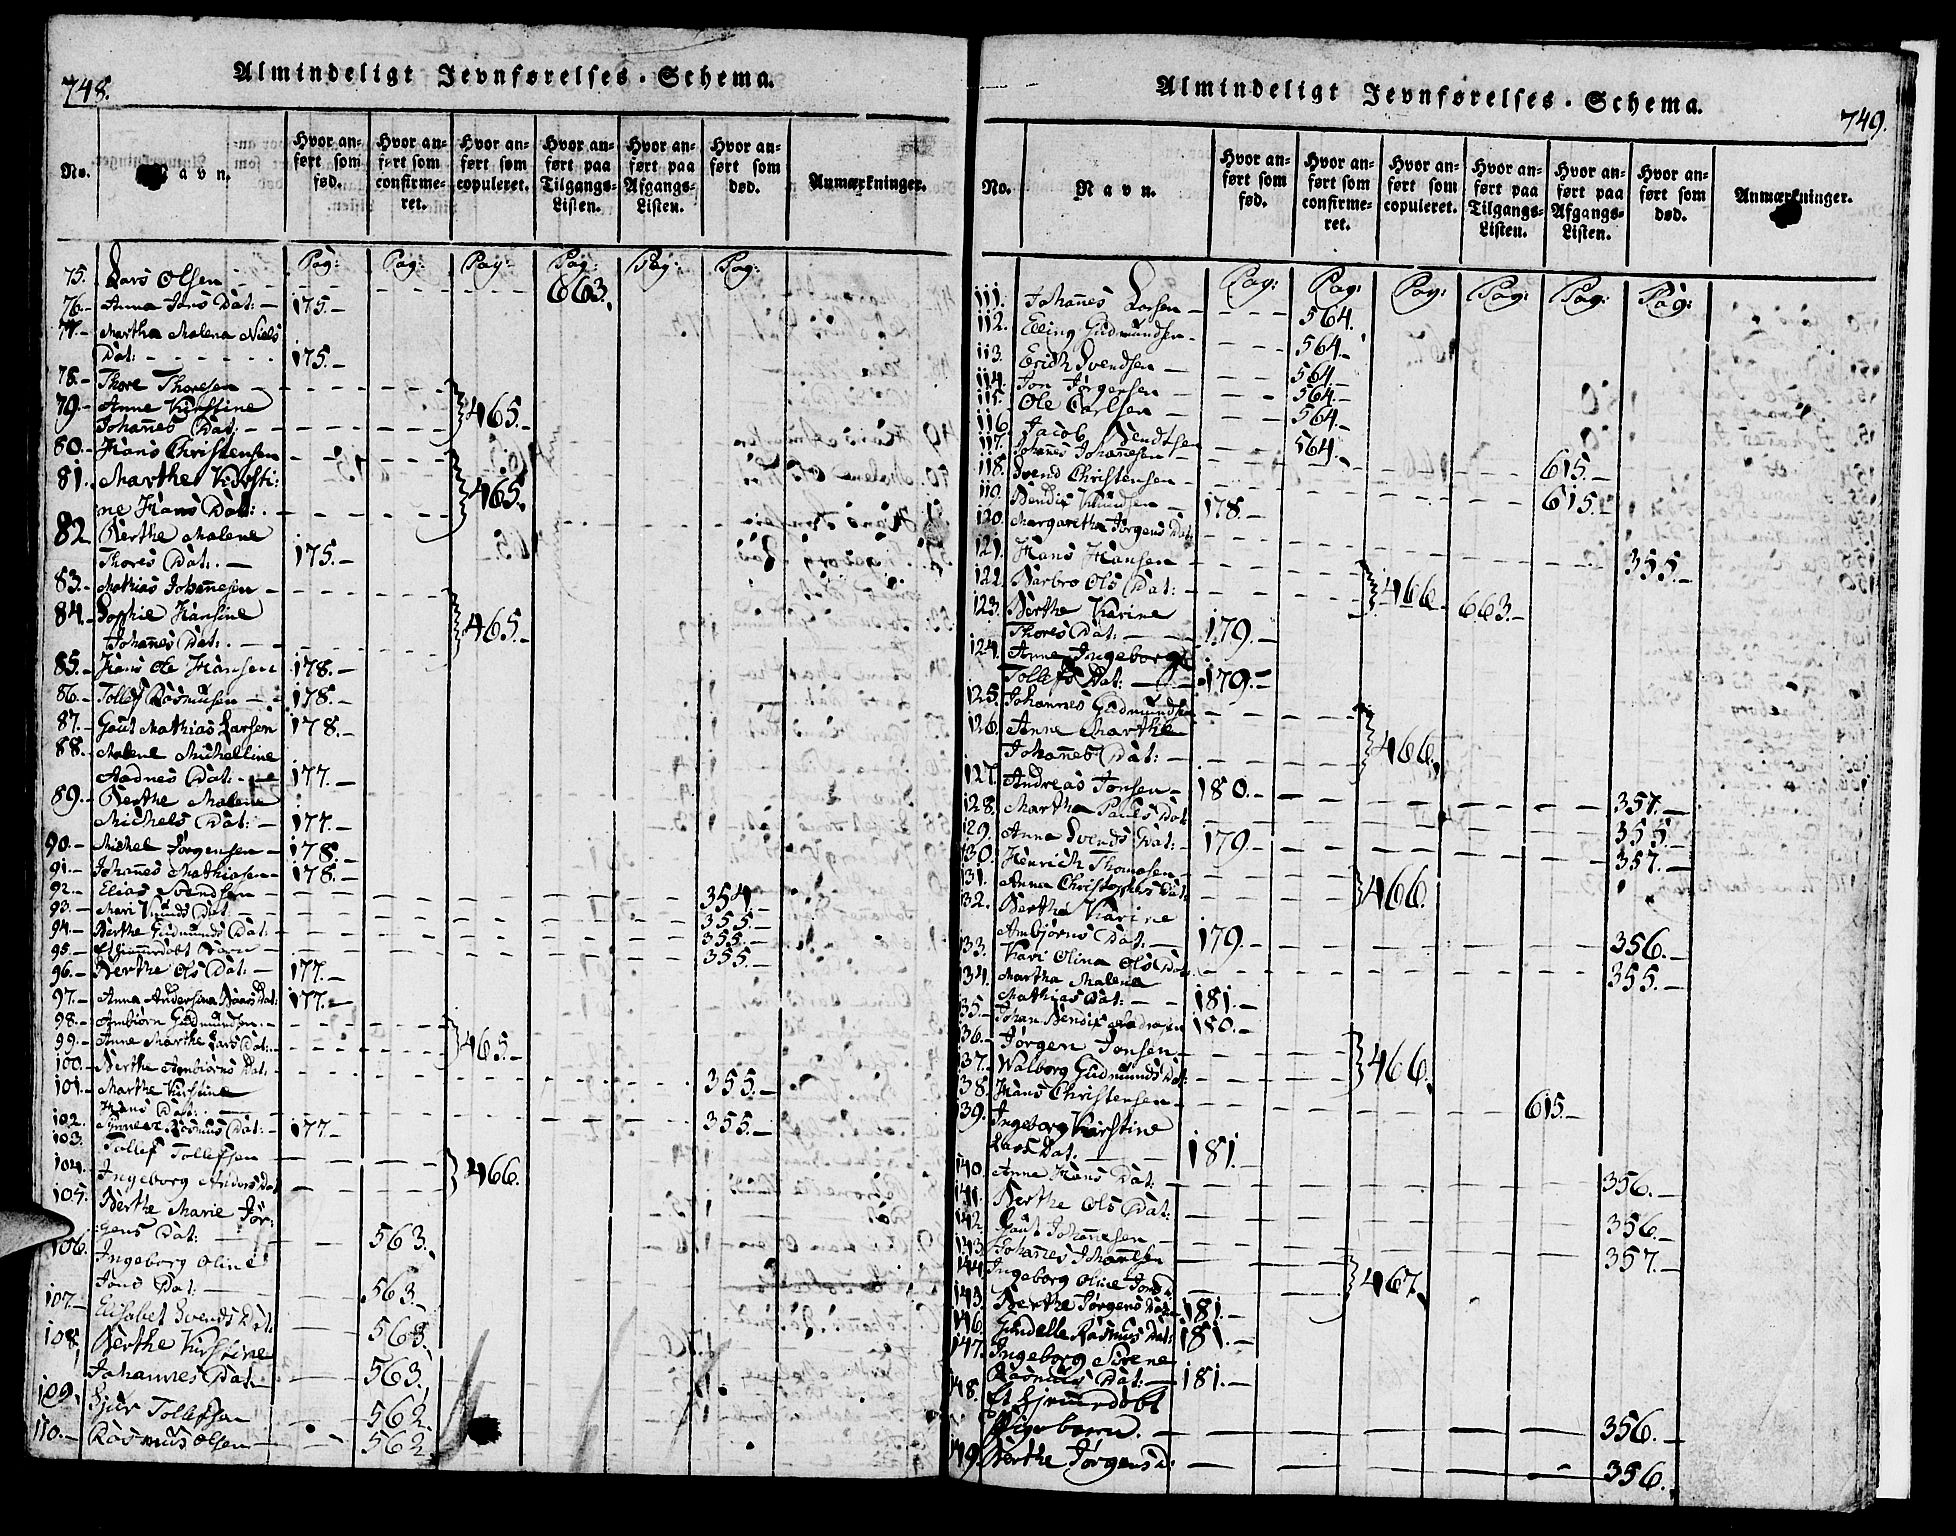 748.
Almindeligt Jevnførelses-Schema.
No. Navn. Hvor anført som fød. Hvor anført som confirmeret. Hvor anført som copuleret. Hvor anført paa Tilgangs-Listen. Hvor anført paa Afgangs-Listen. Hvor anført som død. Anmærkninger.
Pag: Pag: Pag: Pag: Pag: Pag:
75. Lars Olsen 663.
76. Anna Jons Dat: 175.
77. Martha Malena Niels
Dat: 175.
78. Thore Thoresen
79. Anne Kirstine 465.
Johannes Dat:
80. Hans Christensen
81. Marthe Kirsti:
ne Hans Dat: 465.
82 Berthe Malene
Thores Dat: 175.
83. Mathias Johannesen
84. Sophie Hansine
Johannes Dat: 465.
85. Hans Ole Hansen 178.
86. Tollef Rasmusen 178.
87. Gaut Mathias Larsen 178.
88. Malene Michelline
Aadnes Dat: 177.
89. Berthe Malene
Michels Dat: 177.
90. Michel Jørgensen 178.
91. Johannes Mathiasen 178.
92. Elias Svendsen 354.
93. Mari Knuds Dat: 355.
94. Berthe Gudmunds Dat: 355.
95. Et hiemmedøbt Barn 355.
96. Berthe Ols Dat: 177.
97. Anna Andersina Baars Dat: 177.
98. Ambiørn Gudmundsen
99. Anne Marthe Lars Dat: 465.
100. Berthe Ambiørns Dat: 355.
101. Marthe Kirstine
Hans Dat: 355.
102. Synneve Rasmus Dat: 177
103. Tollef Tollefsen
104. Ingeborg Anders Dat 466.
105. Berthe Marie Jør:
gens Dat: 563.
106. Ingeborg Oline
Jons Dat: 563.
107. Elisabet Svends Dat: 563.
108. Berthe Kirstine
Johannes Dat. 563.
109. Sjur Tollefsen 562.
110. Rasmus Olsen 562
749.
Almindeligt Jevnførelses-Schema.
No. Navn. Hvor anført som fød. Hvor anført som confirmeret. Hvor anført som copuleret. Hvor anført paa Tilgangs-Listen. Hvor anført paa Afgangs-Listen. Hvor anført som død. Anmærkninger.
Pag: Pag: Pag: Pag: Pag: Pag:
111. Johannes Larsen 564.
112. Elling Gudmundsen 564.
113. Erich Svendsen 564
114. Jon Jørgensen 564.
115. Ole Carlsen 564.
116. Jacob Bendtsen 564.
117. Johannes Johannesen 615.
118. Svend Christensen 615.
119. Bendix Knudsen 178.
120. Margaretha Jørgens Dat: 355.
121. Hans Hansen
122. Barbro Ols Dat: 466 663.
123. Berthe Karine
Thores Dat: 179.
124. Anne Ingeborg
Tollefs Dat: 179.
125. Johannes Gudmundsen
126. Anne Marthe
Johannes Dat: 466.
127. Andreas Jonsen 180. 357.
128. Martha Pauls Dat 355.
129. Anna Svends Dat: 179. 357.
130. Henrich Thomasen
131. Anna Christophers Dat: 466.
132. Berthe Karine
Ambjørns Dat: 179. 356.
133. Kari Olina Ols Dat: 355.
134. Martha Malena
Mathias Dat: 181.
35. Johan Bendix Andrasen 180.
36. Jørgen Jonsen
37. Walborg Gudmunds Dat: 466.
38. Hans Christensen 615.
39. Ingeborg Kirstine
Lars Dat. 181.
140. Anne Hans Dat: 356.
141. Berthe Ols Dat: 356.
142 Gaut Johannesen 357.
143. Johannes Johannesen
144. Ingeborg Oline Jons D. 467.
145. Berthe Jørgens Dat 181.
146. Gundelle Rasmus Dat: 181.
147. Ingeborg Sirene
Rasmus Dat: 181.
148. Et hjemmedøbt
Pigebarn. 356.
149. Berthe Jørgens D: 356.